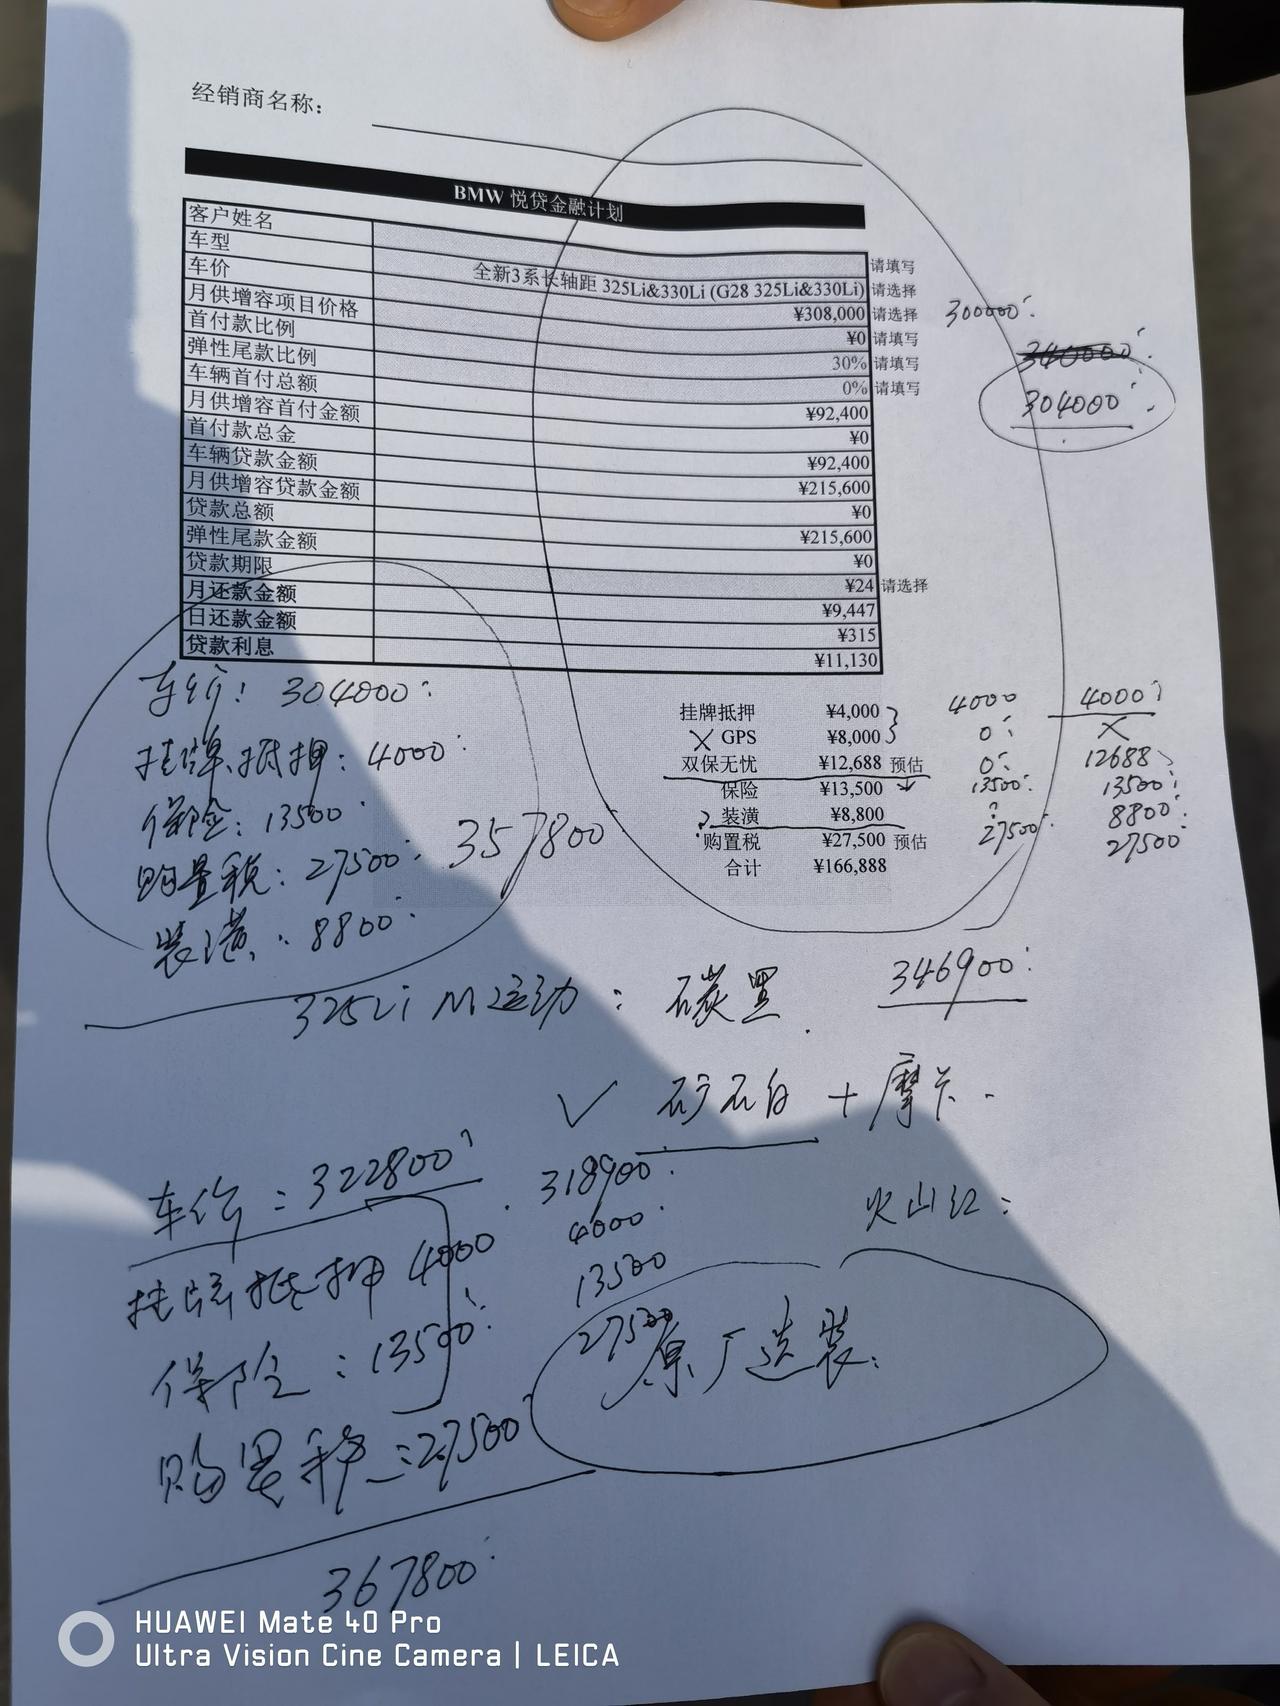 经销商名称：
BMW 悦贷金融计划
客户姓名 请填写
车型 全新3系长轴距 325Li&330Li (G28 325Li&330Li) 请选择
车价 ¥308,000 请选择 300000
月供增容项目价格 ¥0 请填写
首付款比例 30% 请填写 340000
弹性尾款比例 0% 请填写 304000
车辆首付总额 ¥92,400
月供增容首付金额 ¥0
首付款总金 ¥92,400
车辆贷款金额 ¥215,600
月供增容贷款金额 ¥0
贷款总额 ¥215,600
弹性尾款金额 ¥0
贷款期限 ¥24 请选择
月还款金额 ¥9,447
日还款金额 ¥315
贷款利息 ¥11,130
车价: 304000
挂牌、抵押: 4000
保险: 13500
购置税: 27500
装潢: 8800
357800
挂牌抵押 ¥4,000 4000 4000
X GPS ¥8,000 0 X
双保无忧 ¥12,688 预估 0 12688
保险 ¥13,500 13500 13500
? 装潢 ¥8,800 8800
购置税 ¥27,500 预估 27500 27500
合计 ¥166,888
346900
325Li M运动: 碳黑
✓ 矿石白 + 摩卡
火山红:
车价: 322800 318900
挂牌抵押 4000 4000
保险: 13500 13500
购置税: 27500 27500
原厂选装:
367800
HUAWEI Mate 40 Pro
Ultra Vision Cine Camera | LEICA